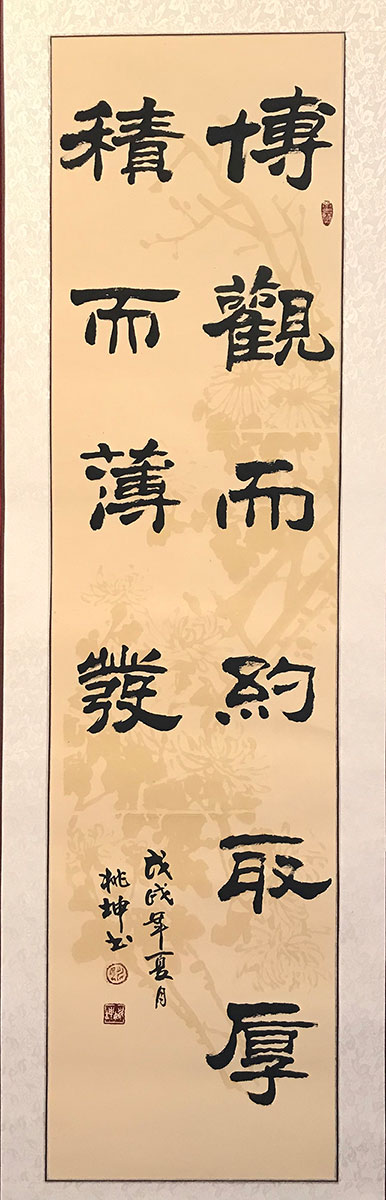 博觀而約取厚
積而薄發
戊戌年夏月
桃坤书